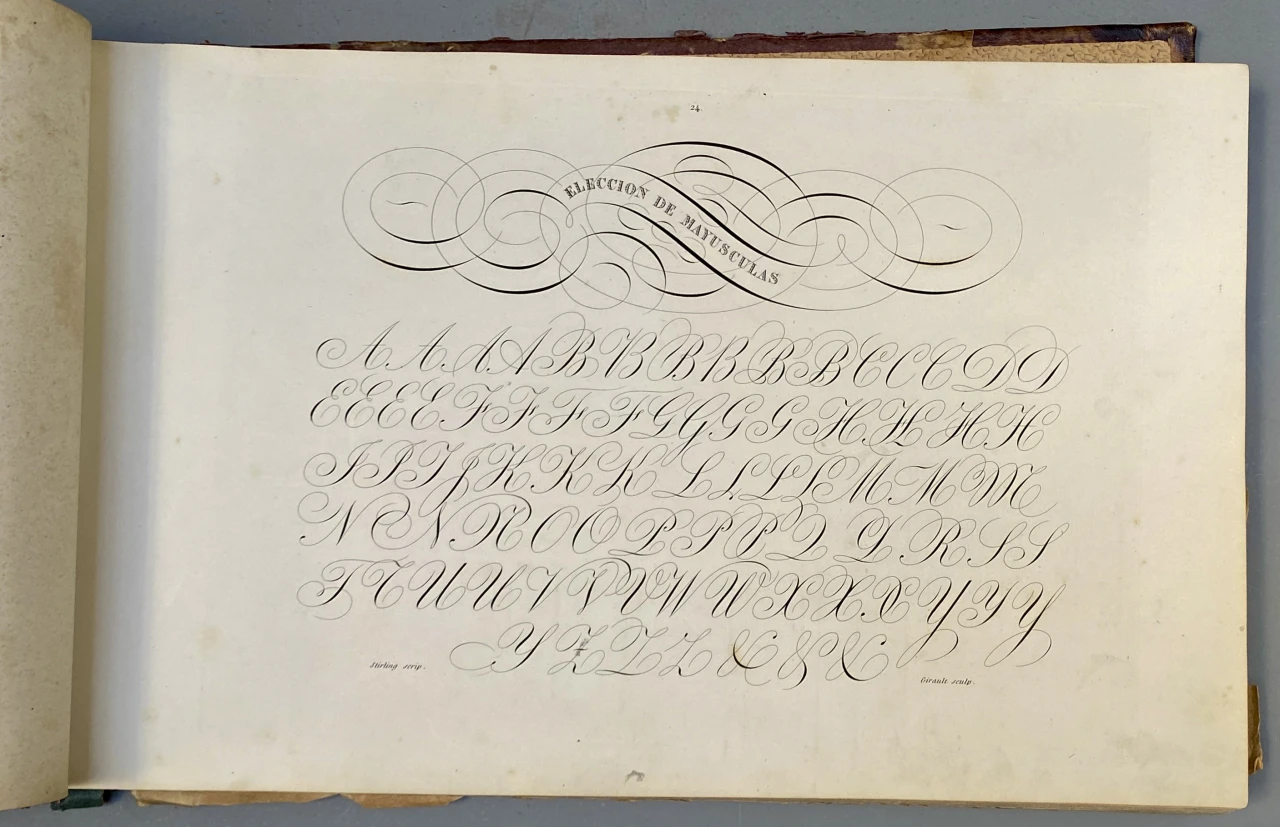 24.
ELECCION DE MAYUSCULAS
A A A A B B B B B B C C C D D
E E E E F F F F G G G G H H H H
I I I J K K K L L L L M M M
N N N O O P P P Q Q R S S
T T U U V V V W W X X X Y Y Y
Y Z Z Z & & &
Stirling scrip.
Girault sculp.